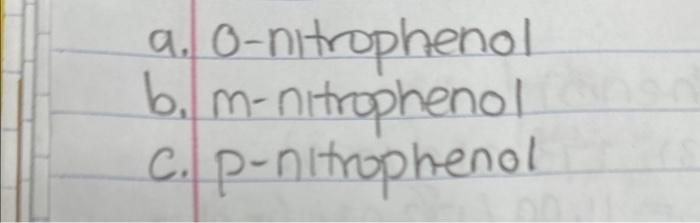 a. o-nitrophenol
b. m-nitrophenol
c. p-nitrophenol